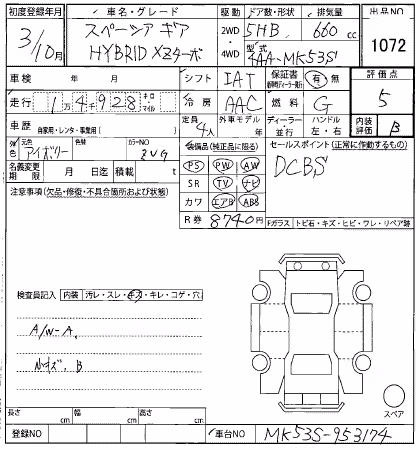 初度登録年月 車名・グレード 駆動 ドア数・形状 排気量 出品NO
3/10月 スペーシア ギア HYBRID XZターボ 2WD 4WD 5HB 660 cc 1072
型式 4AA-MK53S
車検 年 月 シフト IAT 保証書 有・無 評価点
走行 1万4928 キロ・マイル 冷房 AAC 燃料 G 5
車歴 自家用・レンタ・事業用( ) 定員 4人 外車モデル 年 ディーラー・並行 ハンドル 左・右 内装評価 B
外色 元色 アイボリー 色替 カラーNO ZVG 装備品(純正品に限る) セールスポイント(正常に作動するもの)
名義変更期限 月 日迄 積載 t PS PW AW DCBS
注意事項(欠品・修復・不具合箇所および状態) SR TV ナビ
カワ エアB ABS
R券 8740円
Fガラス トビ石・キズ・ヒビ・ワレ・リペア跡
検査員記入 内装 汚レ・スレ・キズ・キレ・コゲ・穴
A/W-A.
小キズ. B
スペア
長さ cm 幅 cm 高さ cm
登録NO 車台NO MK53S-953174